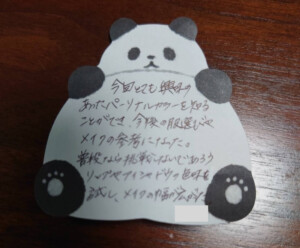 今回とても興味の
あったパーソナルカラーを知る
ことができ、今後の服選びや
メイクの参考になった。
普段なら挑戦しないであろう
リップやアイシャドウの色味を
試し、メイクの幅が広がった